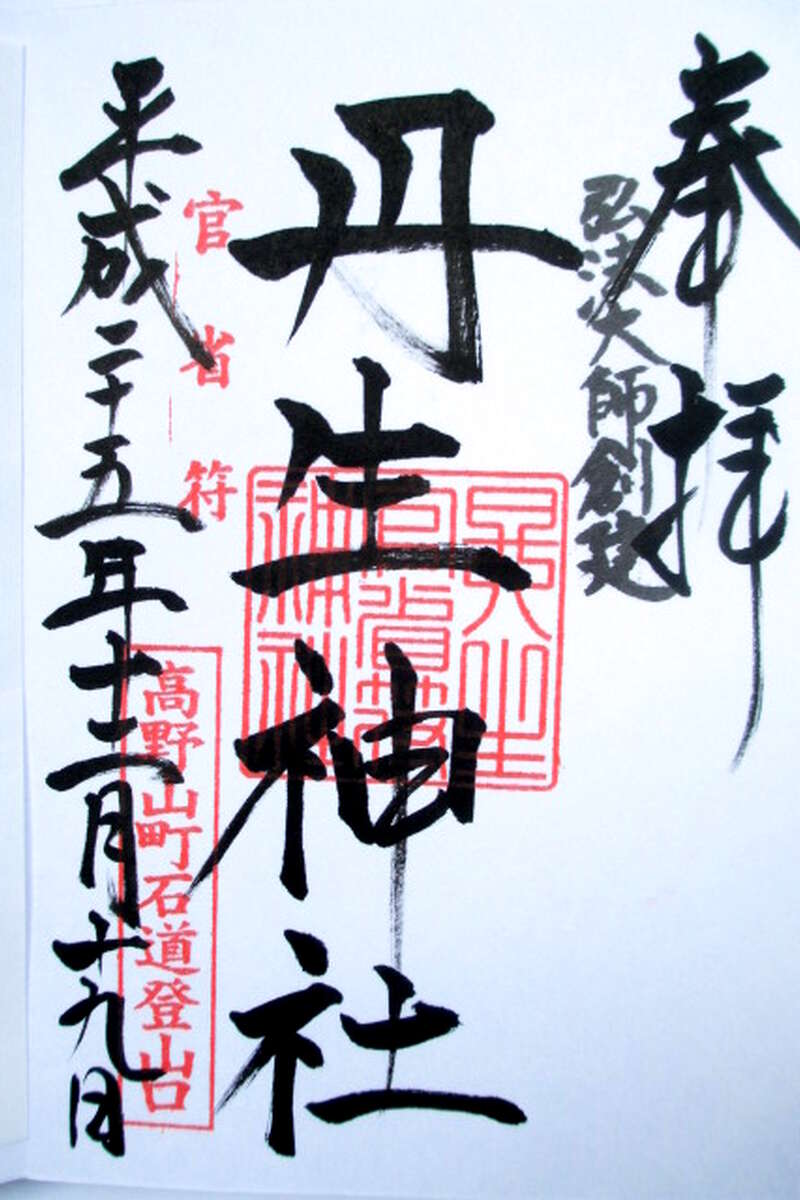 奉拝
弘法大師創建
丹生神社
官省符
高野山町石道登山口
平成二十五年十二月十九日